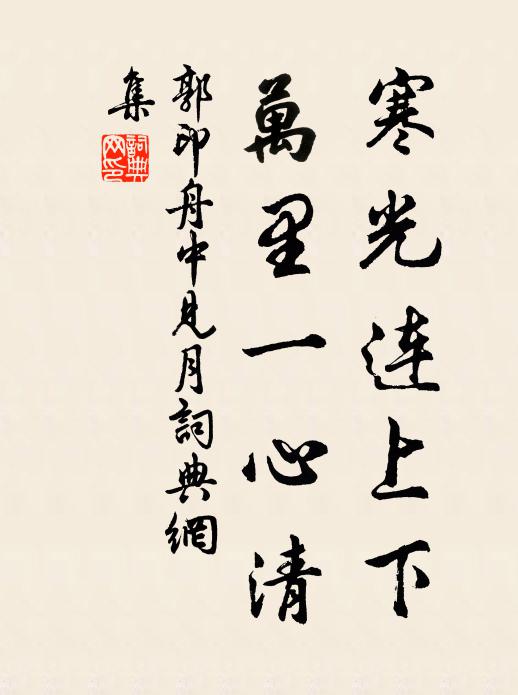 寒光連上下
萬里一心清
郭印舟中見月詞典網
集
詞典
網印